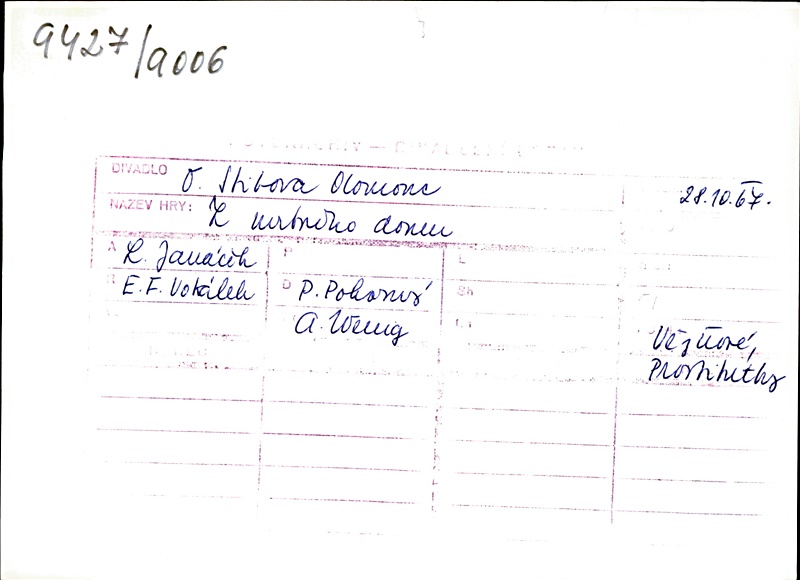 9427/9006
DIVADLO O. Stibora Olomouc
28.10.67.
NÁZEV HRY: Z mrtvého domu
A L. Janáček
P
L
E. F. Vokálek
D P. Pokorný
Sh
A. Wenig
Vězňové,
Prostitutky